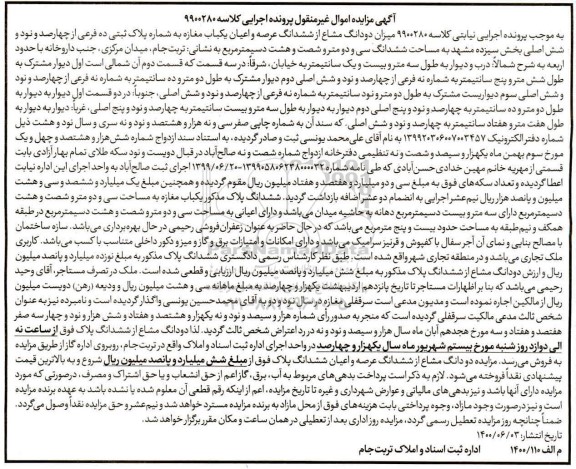 آگهی مزایده اموال غیرمنقول پرونده اجرایی کلاسه ۹۹۰۰۲۸۰
به موجب پرونده اجرایی نیابتی کلاسه ۹۹۰۰۲۸۰ میزان دودانگ مشاع از ششدانگ عرصه واعیان یکباب مغازه به شماره پلاک ثبتی ده فرعی از چهارصد و نود و
شش اصلی بخش سیزده مشهد به مساحت ششدانگ سی و دو متر و شصت و هشت دسیمترمربع به نشانی: تربت‌جام، میدان مرکزی، جنب داروخانه با حدود
اربعه به شرح شمالا: درب و دیوار به طول سه متر و بیست و یک سانتیمتر به خیابان، شرقا: در سه قسمت که قسمت دوم آن شمالی است اول دیوار مشترک به
طول شش متر و پنج سانتیمتر به شماره نه فرعی از چهارصد و نود و شش اصلی دوم دیوار مشترک به طول دو متر و ده سانتیمتر به شماره نه فرعی از چهارصد و نود
و شش اصلی سوم دیواریست مشترک به طول دو متر و نود سانتیمتر به شماره نه فرعی از چهارصد و نود و شش اصلی، جنوبا: در دو قسمت اول دیوار به دیوار به
طول دو متر و ده سانتیمتر به چهارصد و نود و پنج اصلی دوم دیوار به دیوار به طول سه متر و بیست سانتیمتر به چهارصد و نود و پنج اصلی، غربا: دیوار به دیوار به
طول هفت متر و هفتاد سانتیمتر به چهارصد و نود و شش اصلی. که سند آن به شماره چاپی صفر سی و نه هزار و هشتصد و نود و نه سری و سال نود و هشت ذیل
شماره دفتر الکترونیک ۱۳۹۹۲۰۳۰۶۰۰۷۰۰۳۴۵۷ به نام آقای علی‌محمد یونسی ثبت و صادر گردیده، به استناد سند ازدواج شماره شش‌هزار و هشتصد و چهل و یک
مورخ سوم بهمن ماه یکهزار و سیصد و شصت و نه تنظیمی دفترخانه ازدواج شماره شصت و نه صالح‌آباد در قبال دویست و نود سکه طلای تمام بهار آزادی بابت
قسمتی از مهریه خانم مهین خدادی حسن‌آبادی که طی اجرای ثبت صالح‌آباد به واحد اجرای این اداره نیابت
اعطا گردیده و تعداد سکه‌های فوق به مبلغ سی و دو میلیارد و هفتصد و هفتاد میلیون ریال مقوم گردیده و همچنین مبلغ یک میلیارد و ششصد و سی و هشت
میلیون و پانصد هزار ریال نیم‌عشر اجرایی به انضمام دو عشر اضافه بازداشت گردید. ششدانگ پلاک مذکور یکباب مغازه به مساحت سی و دو متر و شصت و هشت
دسیمترمربع دارای سه متر و بیست دسیمترمربع دهانه به حاشیه میدان می‌باشد و دارای اعیانی به مساحت سی و دو متر و شصت و هشت دسیمترمربع در طبقه
همکف و نیم‌طبقه به مساحت حدود بیست و پنج مترمربع می‌باشد که در حال حاضر به عنوان زعفران‌فروشی رحیمی در حال بهره‌برداری می‌باشد. سازه ساختمان
با مصالح بنایی و نمای آن آجر سفال با کفپوش و قرنیز سرامیک می‌باشد و دارای امکانات و امتیازات برق و گاز و میز و دکور داخلی متناسب با کسب می‌باشد. کاربری
ملک تجاری می‌باشد و در منطقه تجاری شهر واقع شده است. طبق نظر کارشناس رسمی دادگستری ششدانگ پلاک مذکور به مبلغ نوزده میلیارد و پانصد میلیون
ریال و ارزش دودانگ مشاع از ششدانگ پلاک مذکور به مبلغ شش میلیارد و پانصد میلیون ریال ارزیابی و قطعی شده است. ملک در تصرف مستاجر، آقای وحید
رحیمی می‌باشد که بنا بر اظهارات مستاجر تا تاریخ پانزدهم اردیبهشت یکهزار و چهارصد به مبلغ ماهانه سی و هشت میلیون ریال و ودیعه (رهن) دویست میلیون
ریال از مالکین اجاره نموده است و مدیون مدعی است سرقفلی مغازه در سال نود و دو به آقای محمدحسین یونسی واگذار گردیده است و نامبرده نیز به عنوان
شخص ثالث مدعی مالکیت سرقفلی گردیده است که منجر به صدور رای شماره هزار و سیصد و نود و نه یکهزار و هفتصد و هشت و شش هزار و نود و چهار سه صفر
هفتصد و هفتاد و سه مورخ هجدهم آبان ماه سال هزار و سیصد و نود و نه در رد اعتراض شخص ثالث گردید. لذا دودانگ مشاع از ششدانگ پلاک فوق از ساعت نه
الی دوازده روز شنبه مورخ بیستم شهریور ماه سال یکهزار و چهارصد در واحد اجرای اداره ثبت اسناد و املاک واقع در تربت‌جام، روبروی اداره گاز از طریق مزایده
به فروش می‌رسد. مزایده دو دانگ مشاع از ششدانگ عرصه و اعیان ششدانگ پلاک فوق از مبلغ شش میلیارد و پانصد میلیون ریال شروع و به بالاترین قیمت
پیشنهادی نقدا فروخته می‌شود. لازم به ذکر است پرداخت بدهی‌های مربوط به آب، برق، گاز اعم از حق انشعاب و یا حق اشتراک و مصرف، درصورتی که مورد
مزایده دارای آنها باشد و نیز بدهی‌های مالیاتی و عوارض شهرداری و غیره تا تاریخ مزایده، اعم از اینکه رقم قطعی آن معلوم شده یا نشده باشد به عهده برنده مزایده
است و نیز درصورت وجود مازاد، وجوه پرداختی بابت هزینه‌های فوق از محل مازاد به برنده مزایده مسترد خواهد شد و نیم‌عشر و حق مزایده نقدا وصول می‌گردد.
ضمنا چنانچه روز مزایده تعطیل رسمی گردد، مزایده روز اداری بعد از تعطیلی در همان ساعت و مکان مقرر برگزار خواهد شد.
تاریخ انتشار: ۱۴۰۰/۰۶/۰۳
م الف ۱۴۰۰/۱۱۰ اداره ثبت اسناد و املاک تربت‌جام